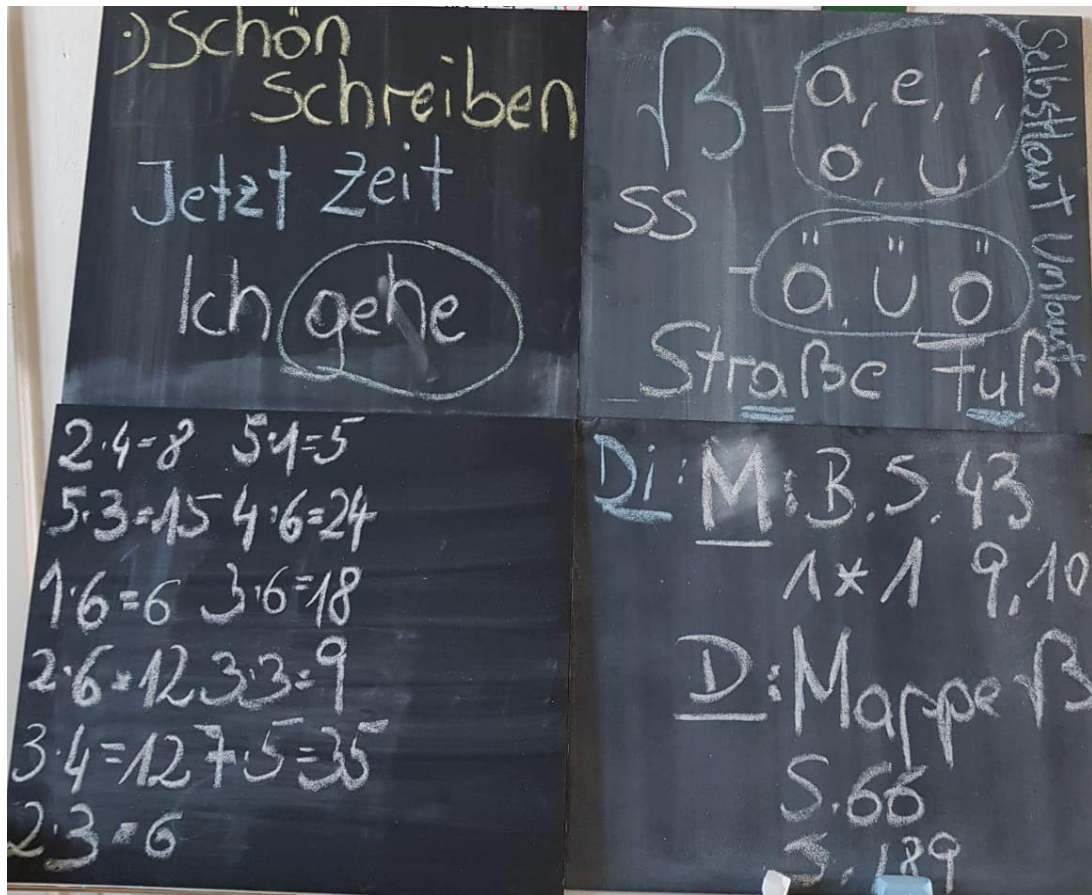 ·) Schön
Schreiben
Jetzt Zeit
Ich gehe
ß - a, e, i,
o, u
ss
- ä, ü ö
Selbstlaut Umlaut
Straße Fuß
2·4=8 5·1=5
5·3=15 4·6=24
1·6=6 3·6=18
2·6=12 3·3=9
3·4=12 7·5=35
2·3=6
Di: M: B. S. 43
1*1 9, 10
D: Mappe ß
S. 66
S. 189